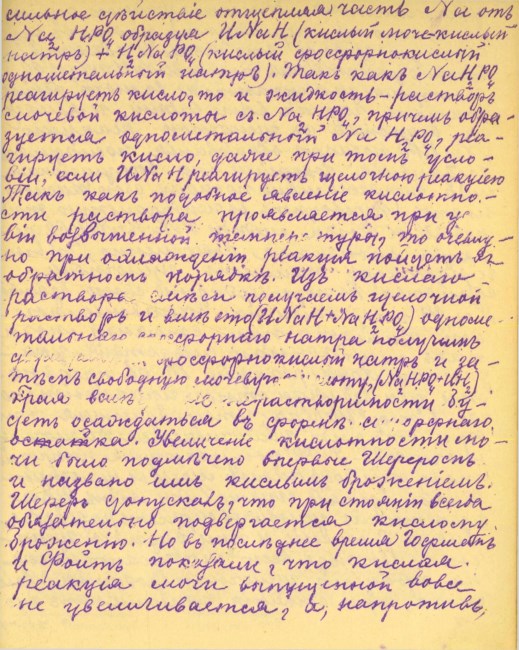 сильное дѣйствіе отщепляя часть Na отъ
Na2HPO4 образуя UNaH (кислый моче-кислый
натръ) + H2NaPO4 (кислый фосфорнокислый
однометальный натръ). Такъ какъ NaH2PO4
реагируетъ кисло, то и жидкость-растворъ
мочевой кислоты съ Na2HPO4, причемъ обра-
зуется однометальный NaH2PO4, реа-
гируетъ кисло, даже при томъ усло-
віи, если UNaH реагируетъ щелочною реакціею
Такъ какъ подобное явленіе кислотно-
сти раствора проявляется при ус
віи возвышенной температуры, то очевид-
но при охлажденіи реакція пойдетъ въ
обратномъ порядкѣ. Изъ кислаго
раствора смѣси получаемъ щелочной
растворъ и вмѣсто (UNaH+NaH2PO4) одноме-
тальнаго фосфорнаго натра получимъ
фосфорнокислый натръ и за-
тѣмъ свободную мочевую кислоту, (Na2HPO4+UH2)
храя нерастворимости бу-
детъ осаждаться въ формѣ
остатка. Увеличеніе кислотности мо-
чи было подмѣчено впервые Шереромъ
и названо имъ кислымъ броженіемъ.
Шереръ допускалъ, что при стояніи всегда
обязательно подвергается кислому
броженію. Но въ послѣднее время
и Фойтъ показали, что кислая
реакція мочи выпущенной вовсе
не увеличивается, а, напротивъ,